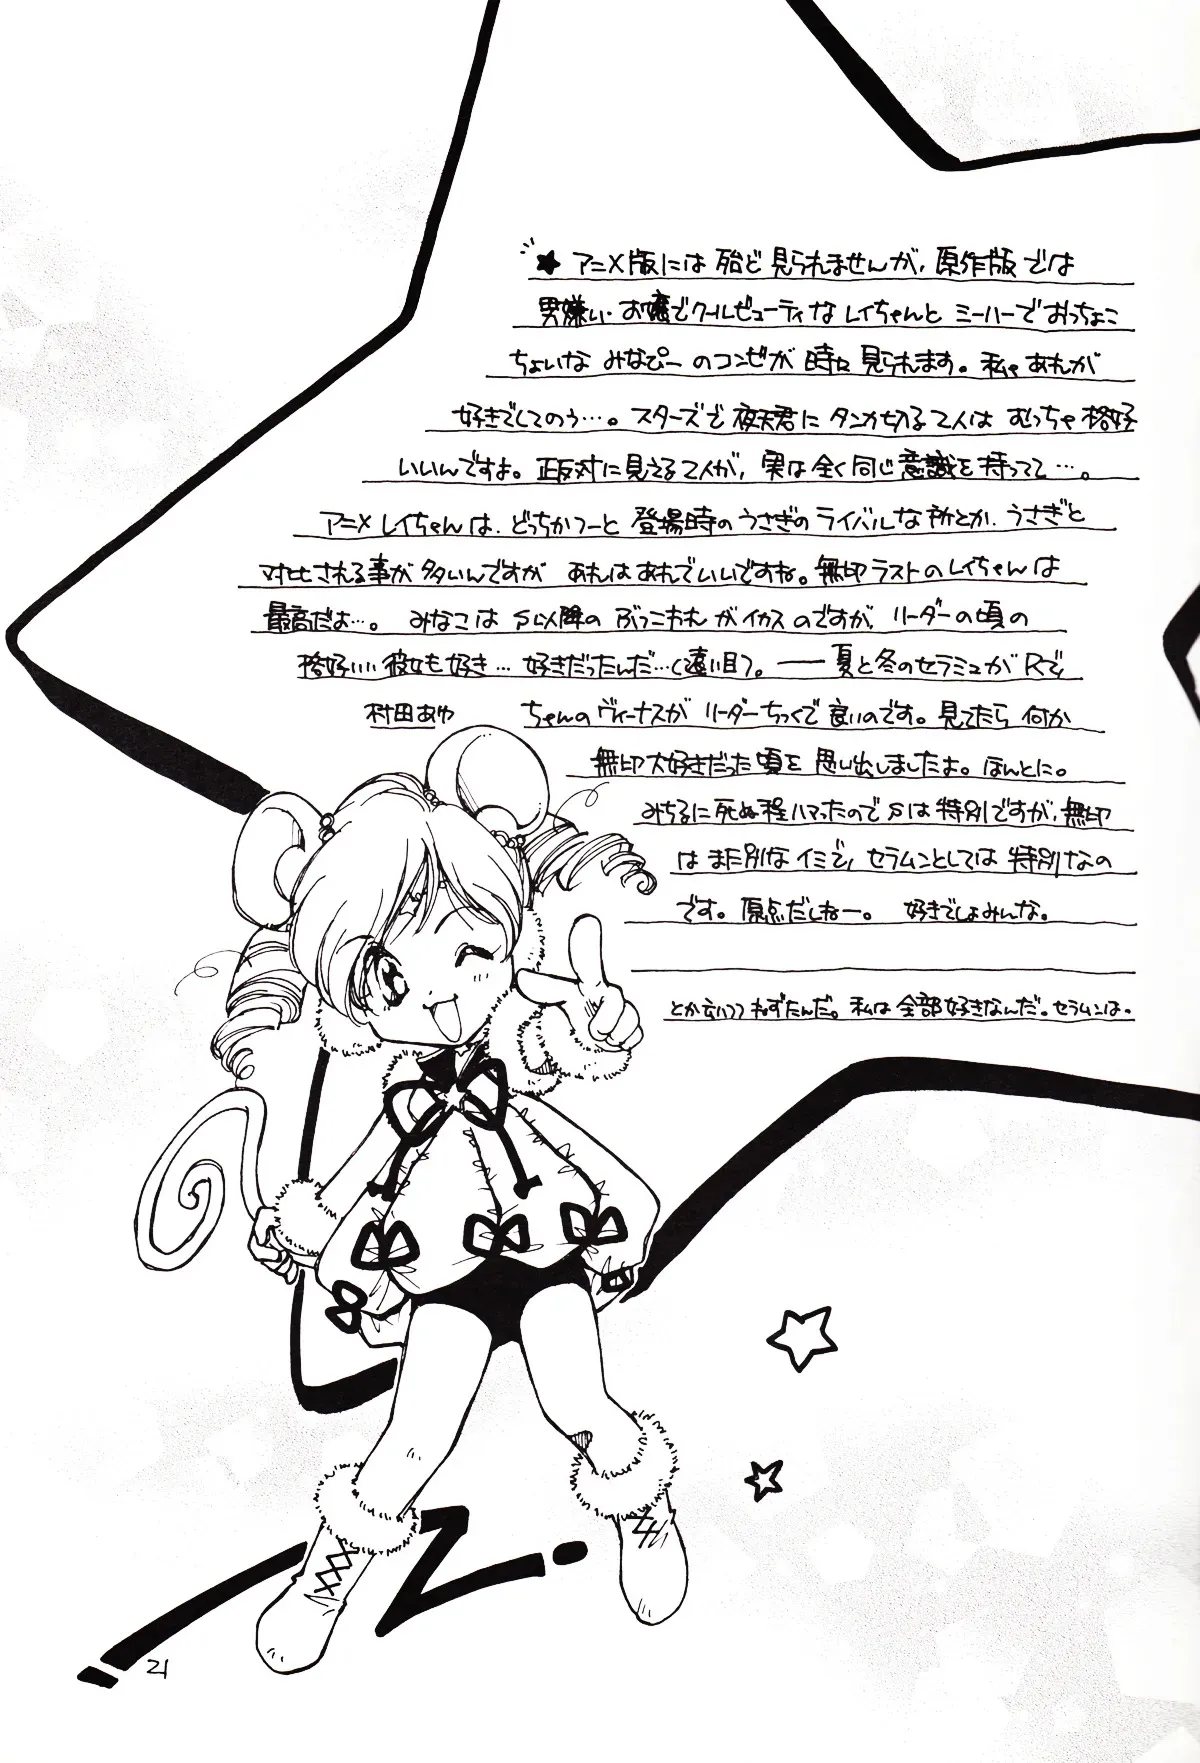 ★ アニメ版には殆ど見られませんが、原作版では
男嫌い・お嬢でクールビューティなレイちゃんとミーハーでおっちょこ
ちょいなみなぴーのコンビが時々見られます。私ゃあれが
好きでしてのう…。スターズで夜天君にタンカ切る2人はむっちゃ格好
いいんですよ。正反対に見える2人が、実は全く同じ意識を持ってて…。
アニメレイちゃんは、どっちかつーと登場時のうさぎのライバルな所とか、うさぎと
対比される事が多いんですがあれはあれでいいですね。無印ラストのレイちゃんは
最高だよ…。みなこはS以降のぶっこわれがイカスのですが、リーダーの頃の
格好いい彼女も好き…好きだったんだ…(遠い目)。――夏と冬のセラミュがRで、
ちゃんのヴィーナスがリーダーちっくで良いのです。見てたら何か
村田あゆ
無印大好きだった頃を思い出しましたよ。ほんとに。
みちるに死ぬ程ハマったのでSは特別ですが、無印
はまた別なイミで、セラムンとしては特別なの
です。原点だしねー。好きでしょみんな。
とか言いつつねずたんだ。私は全部好きなんだ。セラムンは。
21